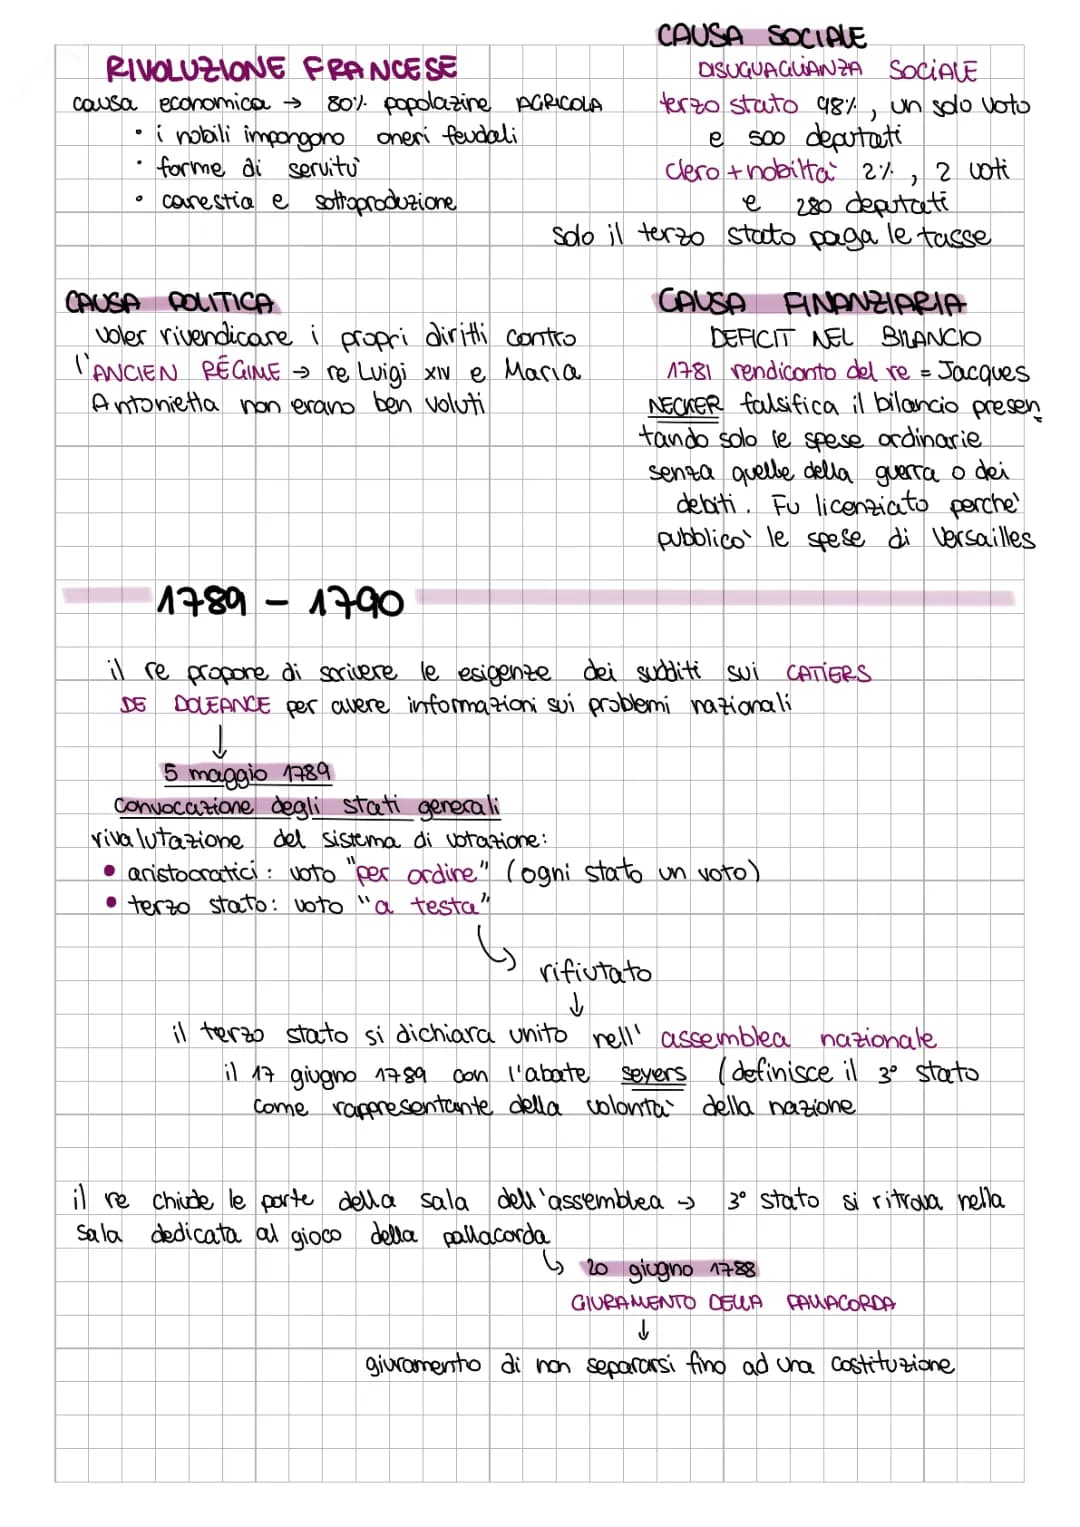 RIVOLUZIONE FRANCESE
causa economica → 80% popolazine AGRICOLA
• i nobili impongono oneri feudali
• forme di servitù
• carestia e sottoproduzione
CAUSA SOCIALE
DISUGUAGLIANZA SOCIALE
terzo stato 98%, un solo voto
e 500 deputati
clero + nobiltà 2%, 2 voti
e 280 deputati
solo il terzo stato paga le tasse
CAUSA POLITICA
voler rivendicare i propri diritti contro
l'ANCIEN RÉGIME → re Luigi XIV e Maria
Antonietta non erano ben voluti
CAUSA FINANZIARIA
DEFICIT NEL BILANCIO
1781 rendiconto del re = Jacques
NECKER falsifica il bilancio presen
tando solo le spese ordinarie
senza quelle della guerra o dei
debiti. Fu licenziato perchè
pubblicò le spese di Versailles
1789 - 1790
il re propone di scrivere le esigenze dei sudditi sui CATIERS
DE DOLEANCE per avere informazioni sui problemi nazionali
↓
5 maggio 1789
convocazione degli stati generali
rivalutazione del sistema di votazione:
• aristocratici: voto "per ordine" (ogni stato un voto)
• terzo stato: voto "a testa"
↳ rifiutato
↓
il terzo stato si dichiara unito nell' assemblea nazionale
il 17 giugno 1789 con l'abate seyers (definisce il 3° stato
come rappresentante della volontà della nazione
il re chiude le porte della sala dell'assemblea → 3° stato si ritrova nella
sala dedicata al gioco della pallacorda
↳ 20 giugno 1788
GIURAMENTO DELLA PALLACORDA
↓
giuramento di non separarsi fino ad una costituzione